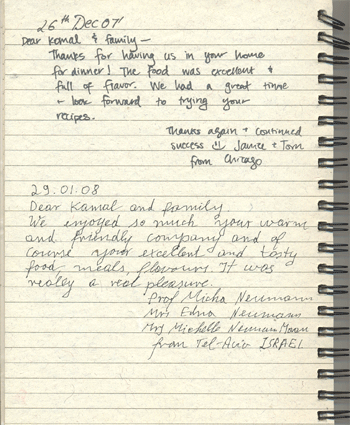 26th Dec 07
Dear Kamal & family —
Thanks for having us in your home
for dinner! The food was excellent &
full of flavor. We had a great time
& look forward to trying your
recipes.
Thanks again & continued
success Janice & Tom
from Chicago
29.01.08
Dear Kamal and family
We enjoyed so much your warm
and friendly company and of
course your excellent and tasty
food, meals, flavours. It was
really a real pleasure.
Prof Micha Neumann
Mrs Edna Neumann
Mrs Michelle Neuman
from Tel-Aviv ISRAEL